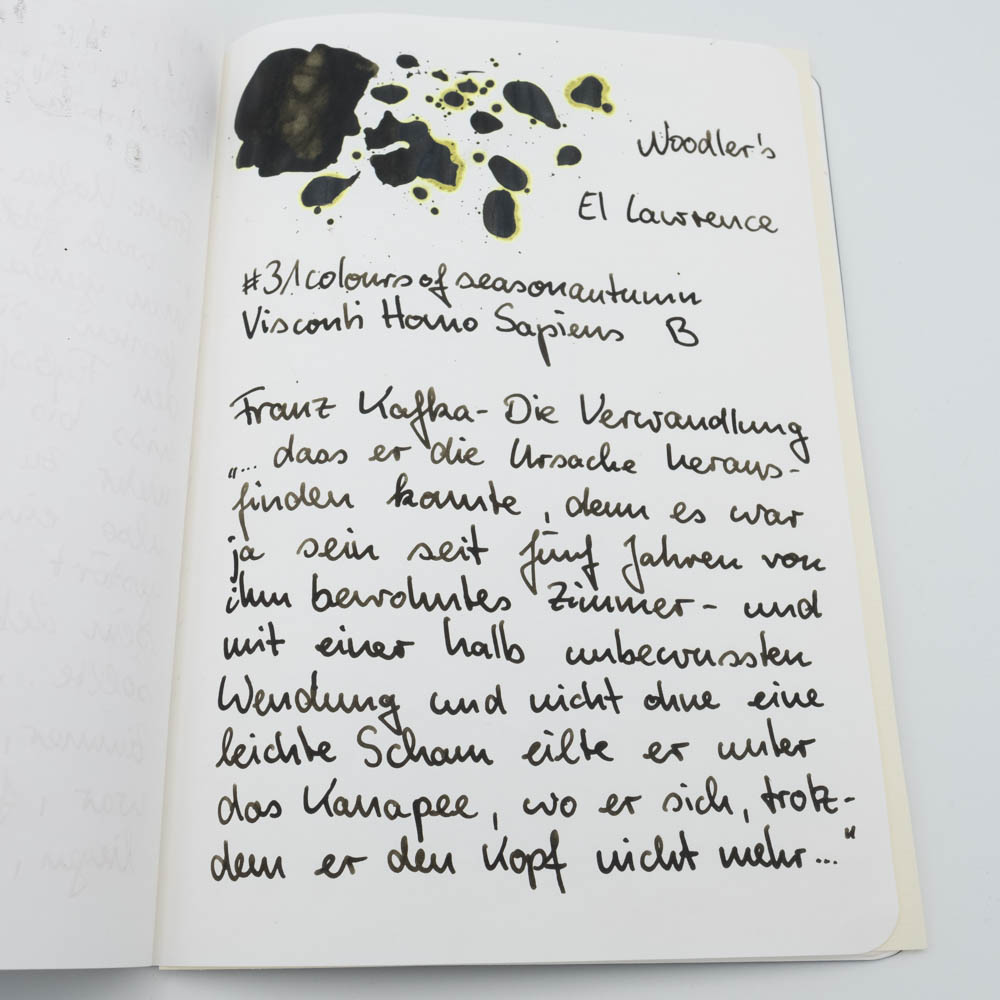 Noodler's
El Lawrence
#31coloursofseasonautumn
Visconti Homo Sapiens B
Franz Kafka - Die Verwandlung
„... dass er die Ursache heraus-
finden konnte, denn es war
ja sein seit fünf Jahren von
ihm bewohntes Zimmer - und
mit einer halb unbewussten
Wendung und nicht ohne eine
leichte Scham eilte er unter
das Kanapee, wo er sich, trotz-
dem er den Kopf nicht mehr..."